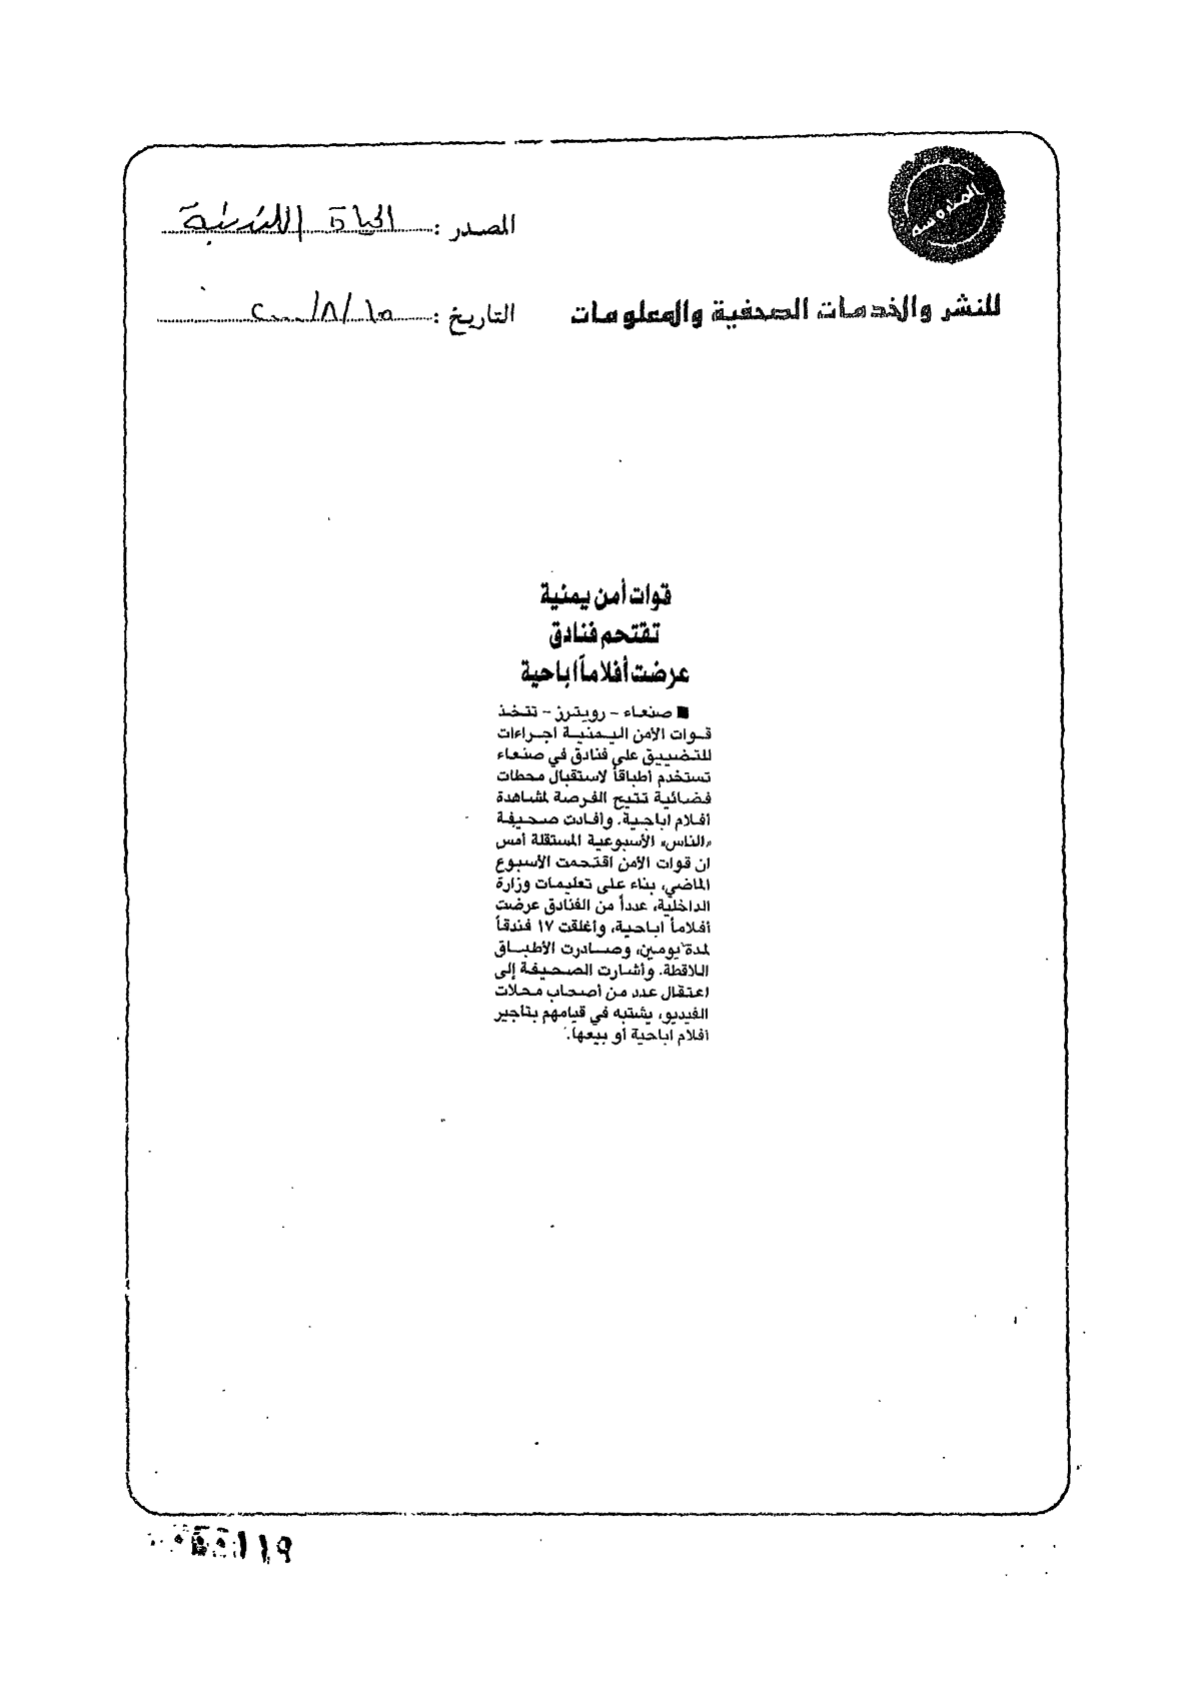 المصدر : الحياة اللندنية
للنشر والخدمات الصحفية والمعلومات
التاريخ : ١٥/٨/٢٠٠٠
قوات أمن يمنية
تقتحم فنادق
عرضت أفلاماً اباحية
■ صنعاء - رويترز - تتخذ
قوات الأمن اليمنية اجراءات
للتضييق على فنادق في صنعاء
تستخدم أطباقاً لاستقبال محطات
فضائية تتيح الفرصة لمشاهدة
أفلام اباحية. وأفادت صحيفة
«الناس» الأسبوعية المستقلة أمس
ان قوات الأمن اقتحمت الأسبوع
الماضي، بناء على تعليمات وزارة
الداخلية، عدداً من الفنادق عرضت
أفلاماً اباحية، وأغلقت ١٧ فندقاً
لمدة يومين، وصادرت الأطباق
اللاقطة. وأشارت الصحيفة إلى
اعتقال عدد من أصحاب محلات
الفيديو، يشتبه في قيامهم بتاجير
أفلام اباحية أو بيعها.